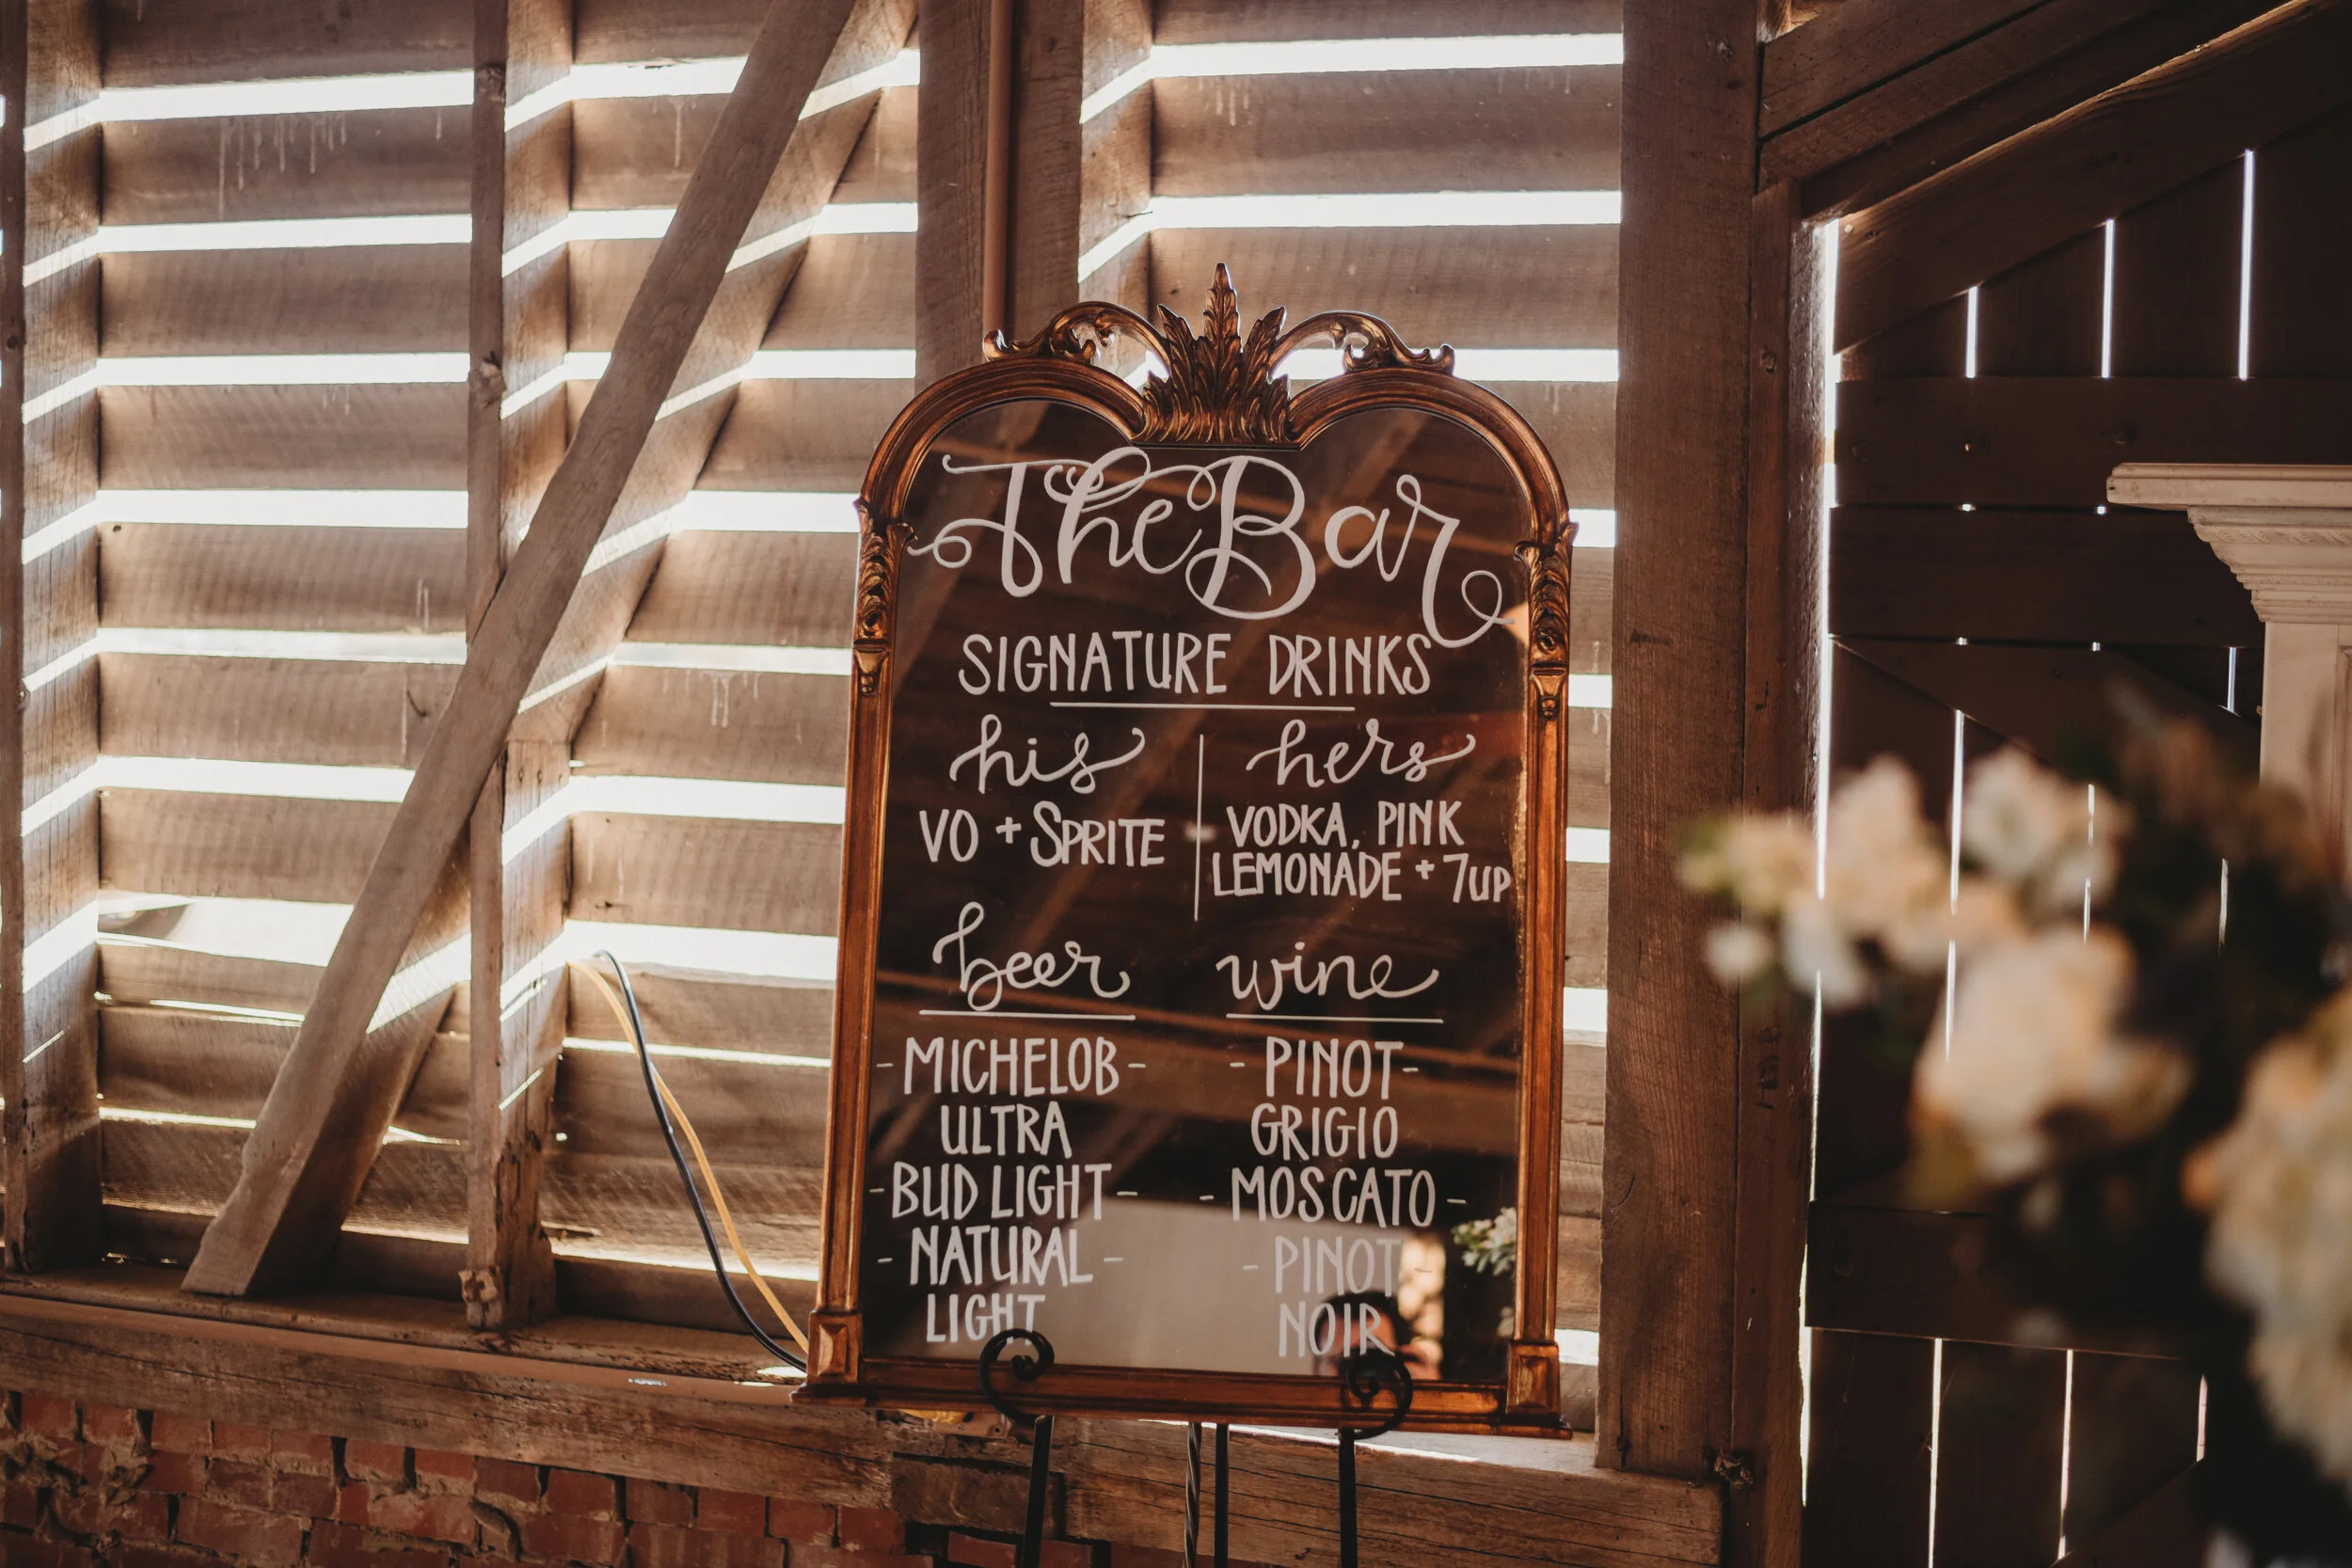 The Bar
SIGNATURE DRINKS
his
VO + SPRITE
hers
VODKA, PINK
LEMONADE + 7UP
beer
- MICHELOB -
ULTRA
- BUD LIGHT -
- NATURAL -
LIGHT
wine
- PINOT -
GRIGIO
- MOSCATO -
- PINOT -
NOIR